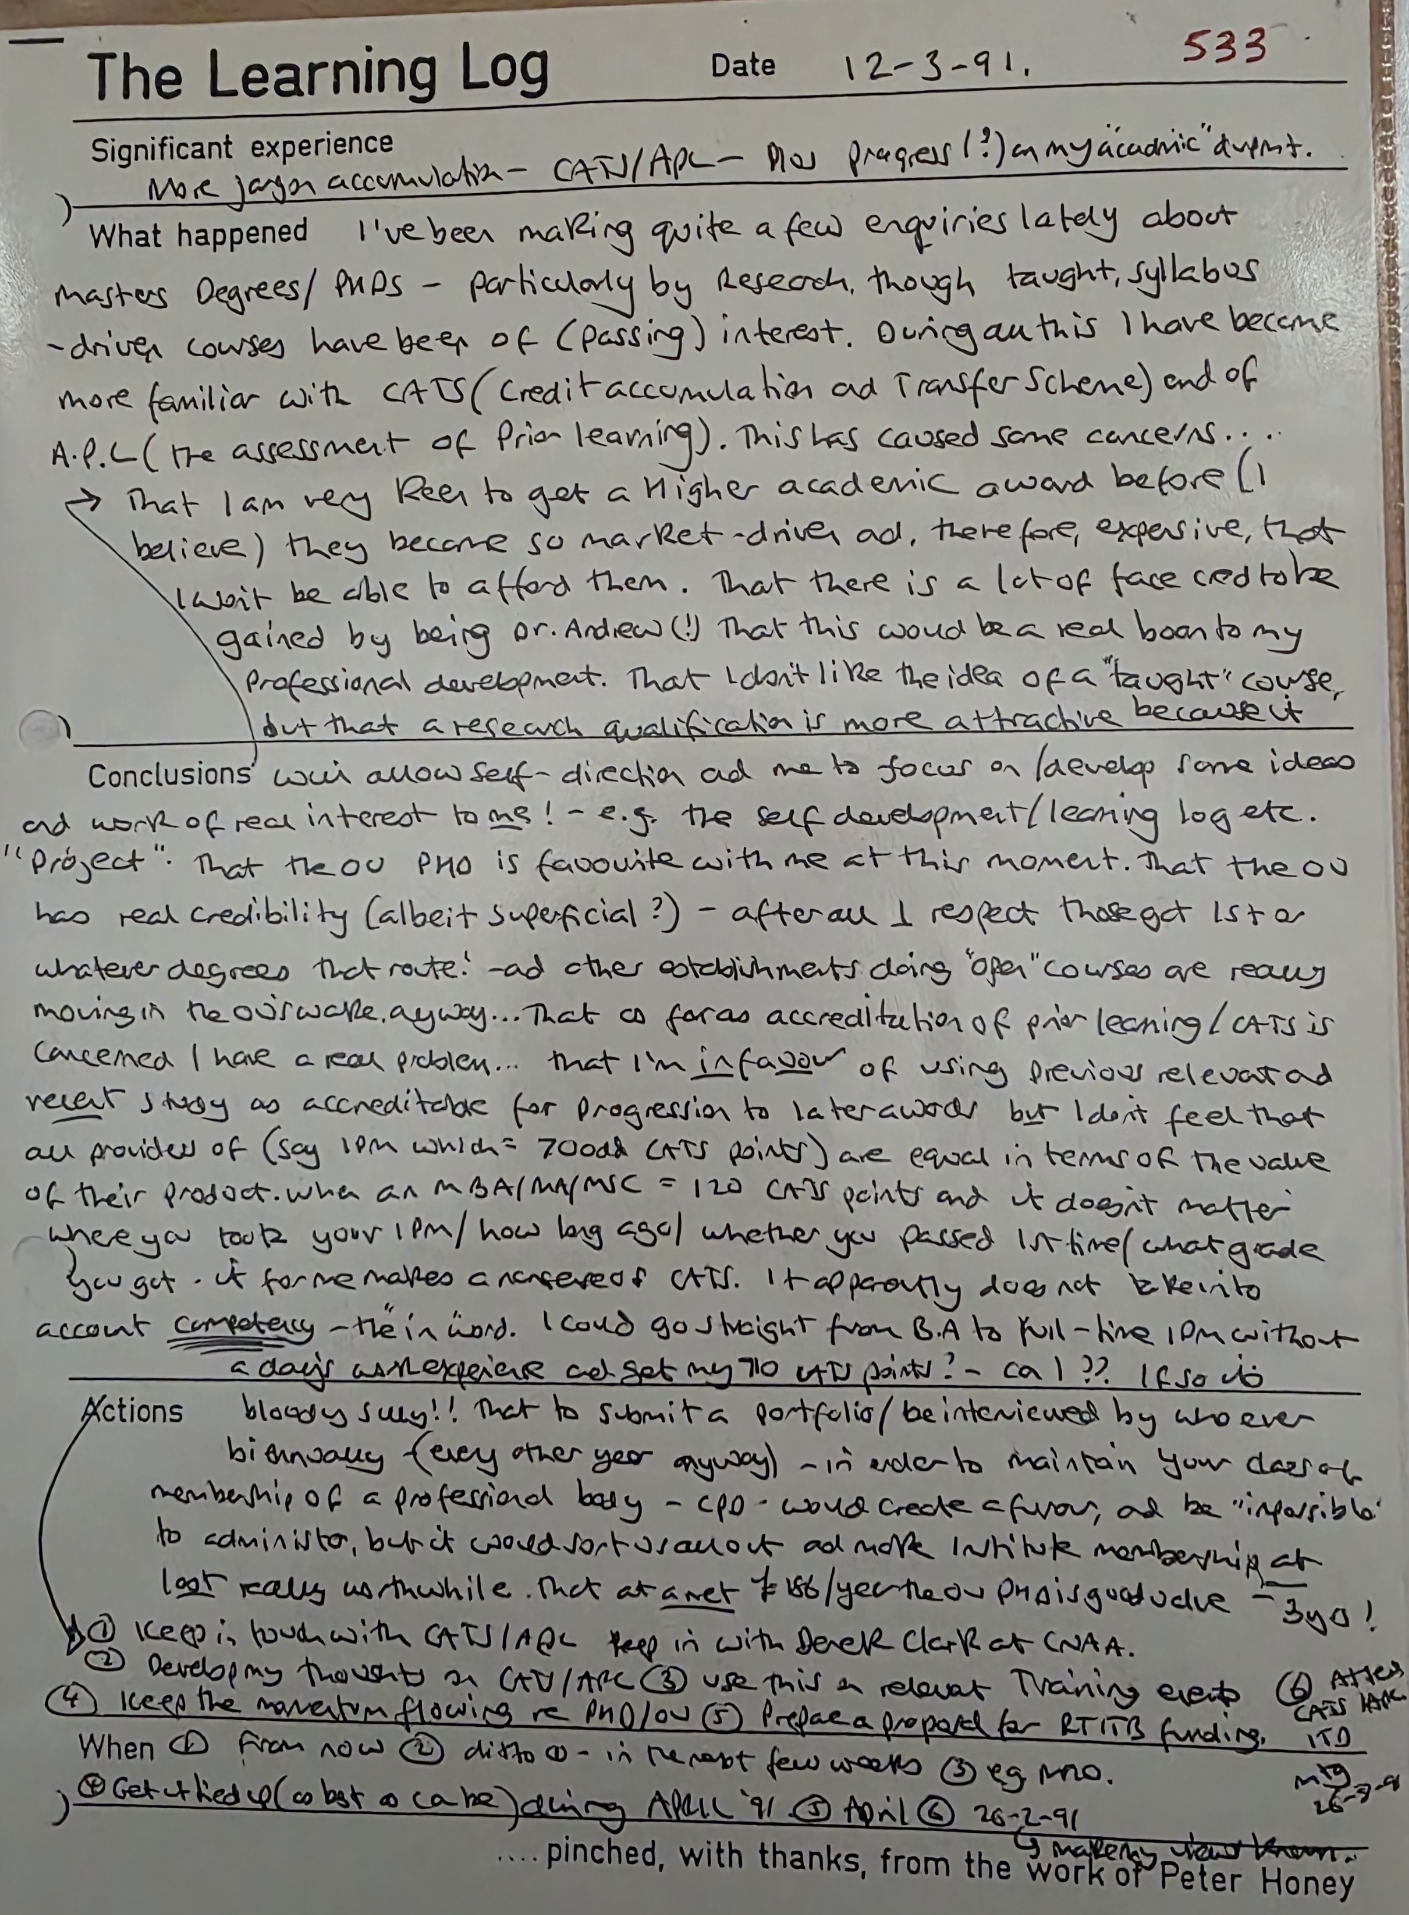 533
The Learning Log Date 12-3-91.
Significant experience
More jargon accumulation - CATS/APL - Plus progress (?) on my "academic" dvpmt.
What happened I've been making quite a few enquiries lately about
Masters Degrees/ PHDS - particularly by Research, though taught, syllabus
-driven courses have been of (passing) interest. During all this I have become
more familiar with CATS (Credit accumulation ad Transfer Scheme) and of
A.P.L (the assessment of Prior learning). This has caused some concerns....
→ That I am very keen to get a Higher academic award before (I
believe) they become so market-driven ad, therefore, expensive, that
I won't be able to afford them. That there is a lot of face cred to be
gained by being Dr. Andrew (!) That this would be a real boon to my
Professional development. That I don't like the idea of a "taught" course,
but that a research qualification is more attractive because it
Conclusions will allow self-direction ad me to focus on/develop some ideas
and work of real interest to me! - e.g. the self development/learning log etc.
"Project". That the OU PHD is favourite with me at this moment. That the OU
has real credibility (albeit superficial?) - after all I respect those got 1st or
whatever degrees that route! - ad other establishments doing "open" courses are really
moving in the OU's wake, anyway... That as far as accreditation of prior learning / CATS is
concerned I have a real problem... that I'm in favour of using previous relevant ad
recent study as accreditable for progression to later awards but I don't feel that
all providers of (say IPM which = 70 odd CATS points) are equal in terms of the value
of their product. When an MBA/MA/MSC = 120 CATS points and it doesn't matter
where you took your IPM/ how long ago/ whether you passed 1st time/ what grade
you got - it for me makes a nonsense of CATS. It apparently does not take into
account competency - the "in" word. I could go straight from B.A to full-time IPM without
a day's work experience and get my 70 CATS points? - Can I?? If so it's
Actions bloody silly!! That to submit a portfolio/ be interviewed by who ever
biannually (every other year anyway) - in order to maintain your class of
membership of a professional body - CPD - would create a furore, ad be "impossible"
to administer, but it would sort us all out ad make Institute membership at
last really worthwhile. That at a net £186/year the OU PHD is good value - 3yrs!
① Keep in touch with CATS/APL keep in with Derek Clark at CNAA.
② Develop my thoughts on CATS/APL ③ use this in relevant Training events ⑥ Attend
CATS/APL
④ Keep the momentum flowing re PHD/OU ⑤ Prepare a proposal for RTITB funding. ITD
When ① From now ② ditto ① - in the next few weeks ③ eg MNO. mtg
26-3-91
④ Get it tied up (as best as can be) during APRIL '91 ⑤ April ⑥ 26-2-91
↳ make my views known.
....pinched, with thanks, from the work of Peter Honey